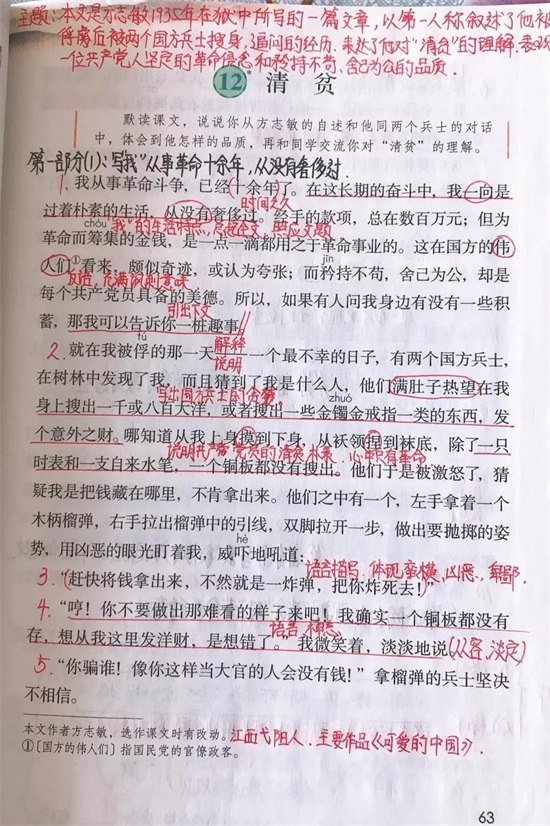 主题:本文是方志敏1935年在狱中所写的一篇文章,以第一人称叙述了他被
俘虏后被两个国方兵士搜身、追问的经历,表达了他对“清贫”的理解,表现
一位共产党人坚定的革命信念和矜持不苟、舍己为公的品质.
12 清贫
默读课文,说说你从方志敏的自述和他同两个兵士的对话
中,体会到他怎样的品质,再和同学交流你对“清贫”的理解。
第一部分(1):写“我”从事革命十余年,从没有奢侈过.
1. 我从事革命斗争,已经(十余年)了。在这长期的奋斗中,我一向是
时间之久
过着朴素的生活,从没有奢侈过。经手的款项,总在数百万元;但为
chóu “我”的生活特点,总起全文,照应文题
革命而筹集的金钱,是一点一滴都用之于革命事业的。这在国方的伟
jīn
人们①看来,颇似奇迹,或认为夸张;而矜持不苟,舍己为公,却是
反语,充满讽刺意味
每个共产党员具备的美德。所以,如果有人问我身边有没有一些积
引出下文
蓄,那我可以告诉你一桩趣事:
fú 解释
2. 就在我被俘的那一天——一个最不幸的日子,有两个国方兵士,
说明
在树林中发现了我,而且猜到了我是什么人,他们满肚子热望在我
写出国方兵士的贪婪 zhuó
身上搜出一千或八百大洋,或者搜出一些金镯金戒指一类的东西,发
个意外之财。哪知道从我上身摸到下身,从袄领捏到袜底,除了一只
说明共产党员的清贫朴素,心中只有革命
时表和一支自来水笔,一个铜板都没有搜出。他们于是被激怒了,猜
疑我是把钱藏在哪里,不肯拿出来。他们之中有一个,左手拿着一个
木柄榴弹,右手拉出榴弹中的引线,双脚拉开一步,做出要抛掷的姿
hè
势,用凶恶的眼光盯着我,威吓地吼道:
语言描写,体现蛮横、凶恶、卑鄙.
3. “赶快将钱拿出来,不然就是一炸弹,把你炸死去!”
4. “哼!你不要做出那难看的样子来吧!我确实一个铜板都没有
语言 神态
存,想从我这里发洋财,是想错了。”我微笑着,淡淡地说(从容,淡定)
5. “你骗谁!像你这样当大官的人会没有钱!”拿榴弹的兵士坚决
不相信。
本文作者方志敏,选作课文时有改动。江西弋阳人.主要作品《可爱的中国》.
①〔国方的伟人们〕指国民党的官僚政客。
63